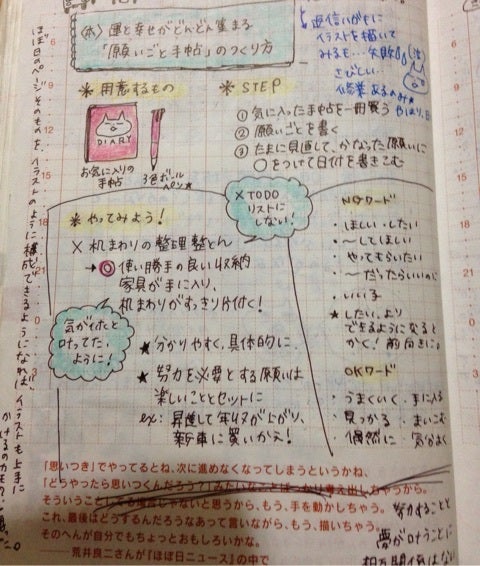 〈本〉運と幸せがどんどん集まる
「願いごと手帖」のつくり方
返信いがいに
イラストを描いて
みるも…失敗
さびしい…
修業あるのみ★
＊用意するもの
DIARY
お気に入りの
手帖
3色ボール
ペン★
＊STEP
①気に入った手帖を一冊買う
②願いごとを書く
③たまに見直して、かなった願いに
○をつけて日付を書きこむ
＊やってみよう！
×机まわりの整理整とん
→◎使い勝手の良い収納
家具が手に入り、
机まわりがすっきり片付く！
×TODO
リストに
しない！
気が付くと
叶ってた、
ように！
★分かりやすく、具体的に
★努力を必要とする願いは
楽しいこととセットに
ex：昇進して年収が上がり、
新車に買いかえ！
NGワード
・ほしい・したい
・〜してほしい
・やせてもらいたい
・〜だったらいいのに
・いい子
★したい、より
できるようになると
かく！前向きに。
OKワード
・うまくいく・手に入る
・見つかる・まいこむ
・偶然に・気分よく
ほぼ日のページそのものを、イラストのように構成できるようになれば、イラストも上手に
かけるのカモ？
「思いつき」でやってるとね、次に進めなくなってしまうというかね、
「どうやったら思いつくんだろうて」みたいなことばっかり考え出しちゃうから。
そういうことしてる場合じゃないと思うから、もう、手を動かしちゃう。
これ、最後はどうするんだろうなあって言いながら、もう、描いちゃう。
そのへんが自分でもちょっとおもしろいかな。
――荒井良二さんが『ほぼ日ニュース』の中で
努力することと
夢が叶うことに
相互関係はない